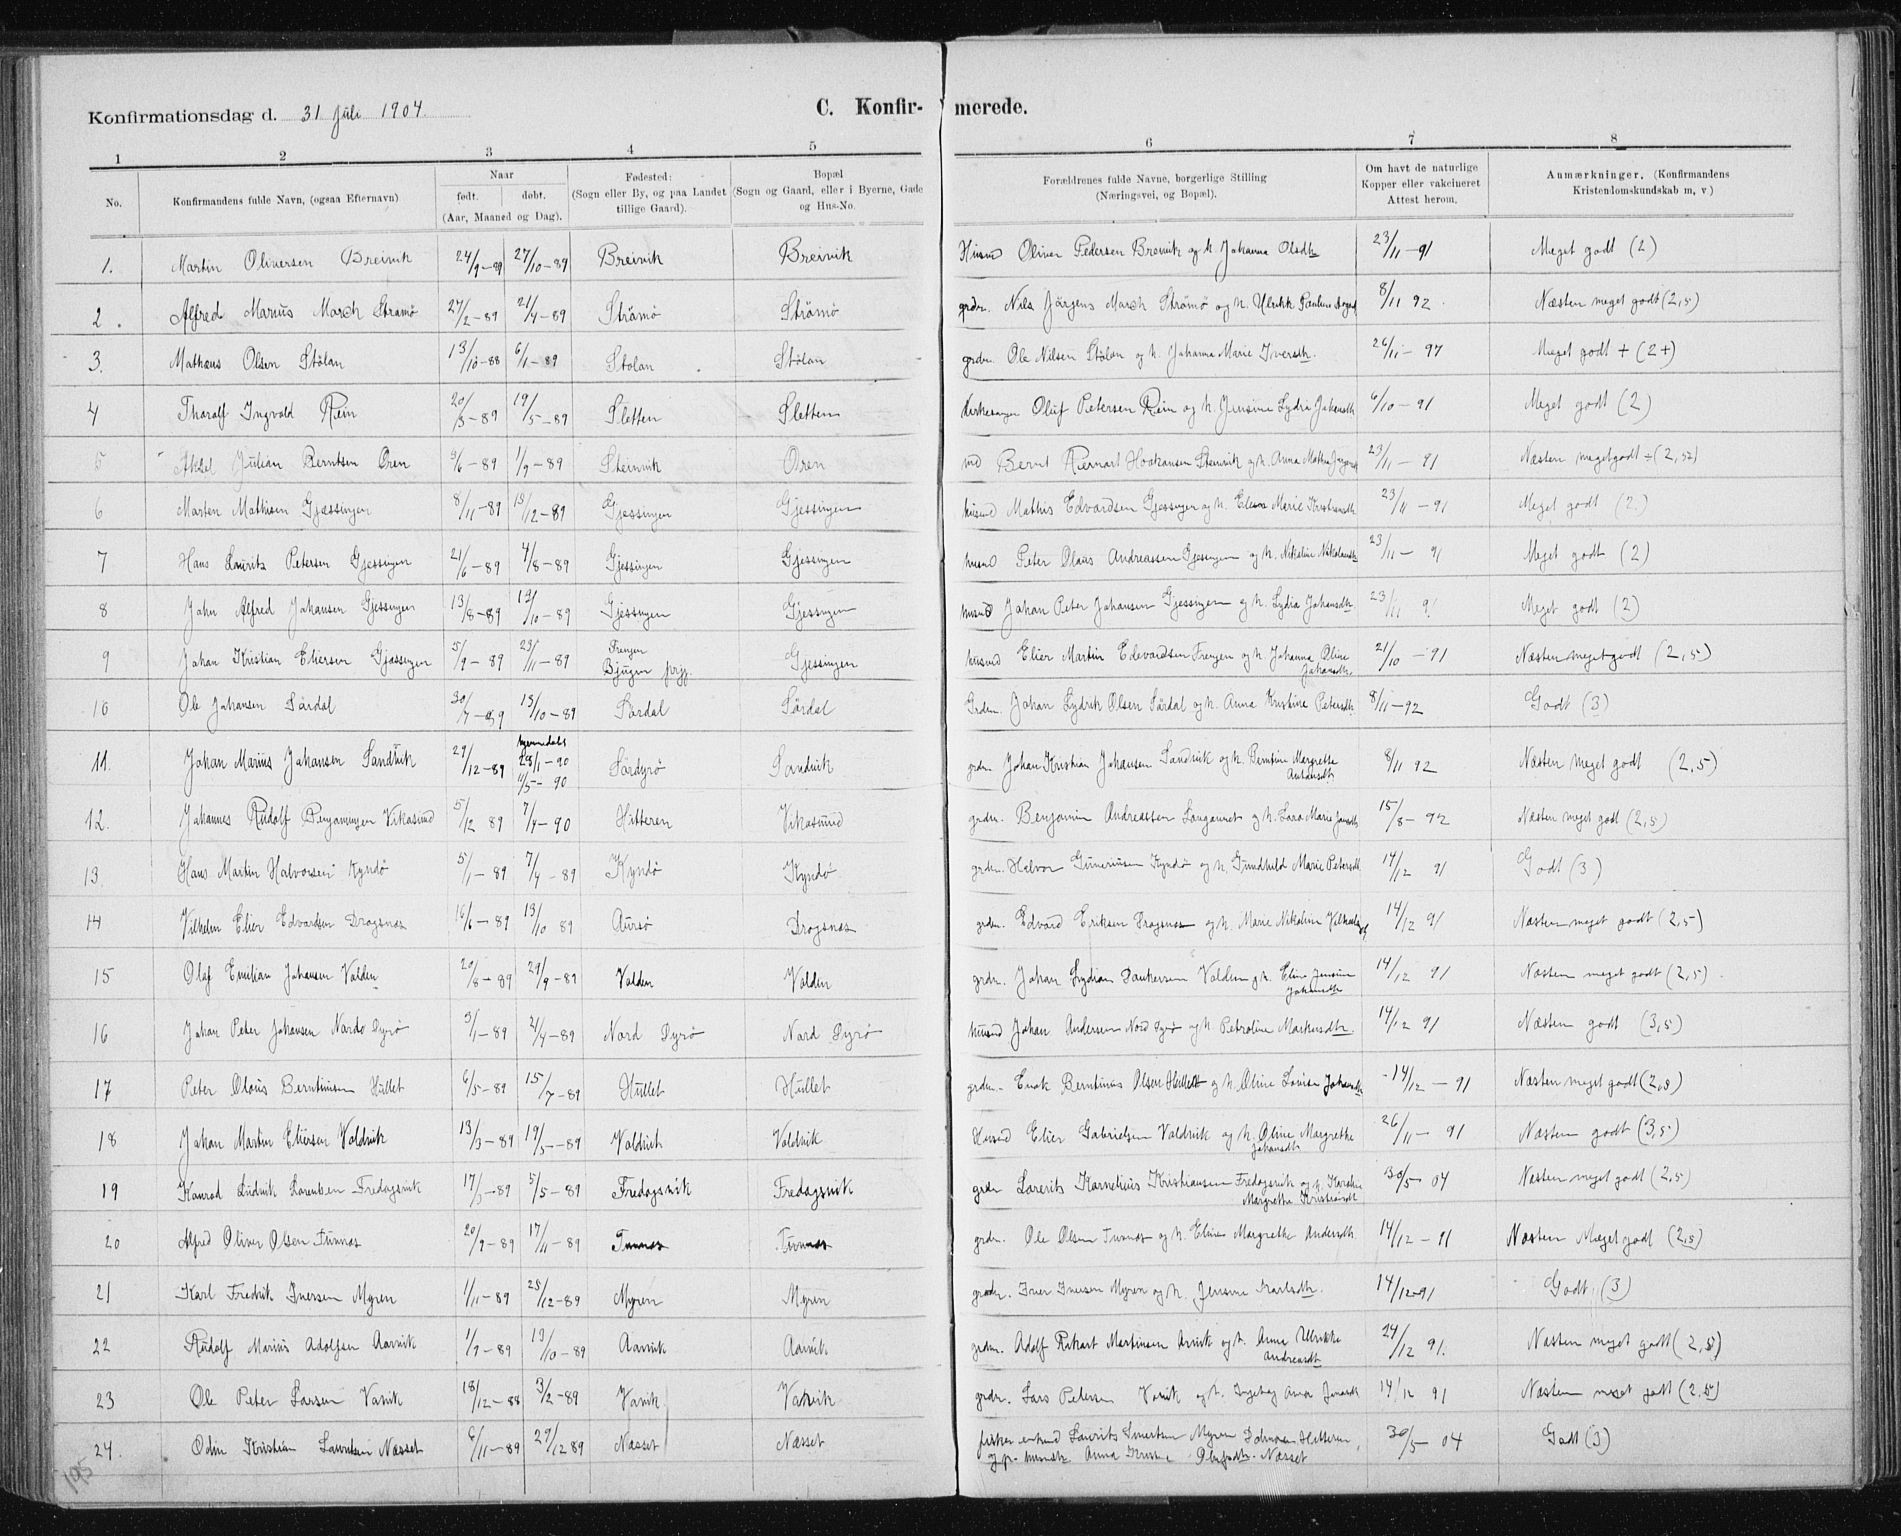 Konfirmationsdag d. 31 Juli 1904. C. Konfir- merede.
1 2 3 4 5 6 7 8
No. Konfirmandens fulde Navn, (ogsaa Efternavn) Naar født. døbt. (Aar, Maaned og Dag). Fødested: (Sogn eller By, og paa Landet tillige Gaard). Bopæl (Sogn og Gaard, eller i Byerne, Gade og Hus-No. Forældrenes fulde Navne, borgerlige Stilling (Næringsvei, og Bopæl). Om havt de naturlige Kopper eller vakcineret Attest herom. Anmærkninger. (Konfirmandens Kristendomskundskab m, v)
1. Martin Oliversen Breivik 24/9-89 27/10-89 Breivik Breivik Husmd Oliver Pedersen Breivik og h. Johanna Olsdtr 23/11-91 Meget godt (2)
2. Alfred Marius March Strømø 27/2-89 21/4-89 Strømø Strømø grdr. Nils Jørgens March Strømø og h. Ulrikk Pauline 8/11 92. Næsten meget godt (2,5)
3. Mathæus Olsen Stølan 13/10-88 6/1-89 Stølan Stølan grdr. Ole Nilsen Stølan og h. Johanna Marie Iversdtr. 26/11-97 Meget godt + (2+)
4 Tharalf Ingvald Rein 20/3-89 19/5-89 Sletten Sletten Kirkesanger Oluf Petersen Rein og h. Jensine Lydia Johansdtr 6/10-91 Meget godt (2)
5 Aksel Julian Berntsen Øren 9/6-89 1/9-89 Steinvik Øren Bernt Haakansen Steinvik og h. Anna 23/11-91 Næsten meget godt
6 Marten Mathisen Gjæssingen 8/11-89 15/12-89 Gjessingen Gjessingen husmd Mathis Edvardsen Gjessingen og h. Elene Marie Kristiansdtr 23/11-91 Meget godt (2)
7 Hans Laurits Petersen Gjessingen 21/6-89 4/8-89 Gjessingen Gjessingen husmd Peter Olaus Andreassen Gjessingen og h. Nikoline Nikolaisdtr 23/11-91 Meget godt (2)
8 John Alfred Johansen Gjessingen 13/8-89 13/10-89 Gjessingen Gjessingen husmd Johan Peter Johansen Gjessingen og h. Lydia Johansdtr. 23/11 91 Meget godt (2)
9 Johan Kristian Eliersen Gjæssingen 5/9-89 23/11-89 Frengen Bjugn prgj. Gjessingen husmd Elier Martin Edevardsen Frengen og h. Johanna Oline Johansdtr. 21/10-91 Næsten meget godt (2,5)
10 Ole Johansen Sørdal 30/7-89 13/10-89 Sørdal Sørdal Grdm. Johan Lydrik Olsen Sørdal og h. Anna Kristine Petersdtr 8/11-92 Godt (3)
11. Johan Marius Johansen Sandvik 29/12-89 hjemmedøbt 28/1-90 11/5-90 Sørdyrø Sandvik grdr Johan Kristian Johansen Sandvik og h. Berntine Margrethe Antonsdtr 8/11 92 Næsten meget godt (2,5)
12. Johannes Rudolf Benjaminsen Vikasund 5/12 89 7/4-90 Hitteren Vikasund grdr. Benjamin Andreassen og h. Sara Marie 15/8-92 Næsten meget godt (2,5)
13. Hans Martin Halvorsen Kyndø 5/1-89 7/4-89 Kyndø Kyndø grdr. Halvor Gunerusen Kyndø og h. Gundhild Marie Petersdtr 14/12 91 Godt (3)
14 Vilhelm Elier Edvardsen Dragsnæs 16/6-89 13/10 89 Aursø Dragsnæs grdr. Edvard Eriksen Dragsnæs og h. Marie Nikoline 14/12 91 Næsten meget godt (2,5)
15 Olaf Emilian Johansen Valden 20/8-89 29/9-89 Valden Valden grdr. Johan Lydian Valden og h. Eline Jensine Johansdtr 14/12 91 Næsten meget godt (2,5).
16 Johan Peter Johansen Nordø Dyrø 3/1-89 21/4-89 Nord Dyrø Nord Dyrø husmd Johan Andersen Nord Dyrø og h. Petroline Markusdtr. 14/12 91 Næsten godt (3,5)
17 Peter Olaus Berntinsen Hullet 6/5-89 15/7-89 Hullet Hullet grdr. Enok Berntinus Olsen Hullet og h. Oline Lovise Johansdtr 14/12-91 Næsten meget godt (2,5)
18 Johan Martin Eliersen Valdvik 13/3-89 19/5-89 Valdvik Valdvik Husmd Elier Gabrielsen Valdvik og h. Oline Margrethe Johansdtr 26/11-91 Næsten godt (3,5)
19 Konrad Ludvik Lorentsen Fredagsvik 17/3-89 5/5-89 Fredagsvik Fredagsvik grdr Lorents Kornelius Kristiansen Fredagsvik og h. Margrethe Kristiansdtr 30/5 04 Næsten meget godt (2,5)
20 Alfred Oliver Olsen Tunnæs 20/9-89 17/11-89 Tunnæs Tunnæs grdr. Ole Olsen Tunnæs og h. Eline Margrethe Andersdtr 14/12-91 Næsten Meget godt (2,5)
21 Karl Fredrik Iversen Myren 1/11-89 28/12-89 Myren Myren grdr. Iver Iversen Myren og h. Jensine Karlsdtr. 14/12-91 Godt (3)
22 Rudolf Marius Adolfsen Aarvik 1/9-89 13/10-89 Aarvik Aarvik grdr. Adolf Rikart Martinsen Arvik og h. Anna Ulrikke Andreasdtr 24/12 91. Næsten meget godt (2,5)
23 Ole Peter Larsen Vavik 18/12-88 3/2-89 Vavik Vavik grdr. Lars Petersen Vavik og h. Ingeborg Anna 14/12 91 Næsten meget godt (2,5)
24. Odin Kristian Lauritsen Næsset 6/11-89 29/12 89 Næsset Næsset fisker enkmd Laurits Myren Hitteren, og p. Anna Olufsdtr. Næsset 30/5-04 Godt (3)
195